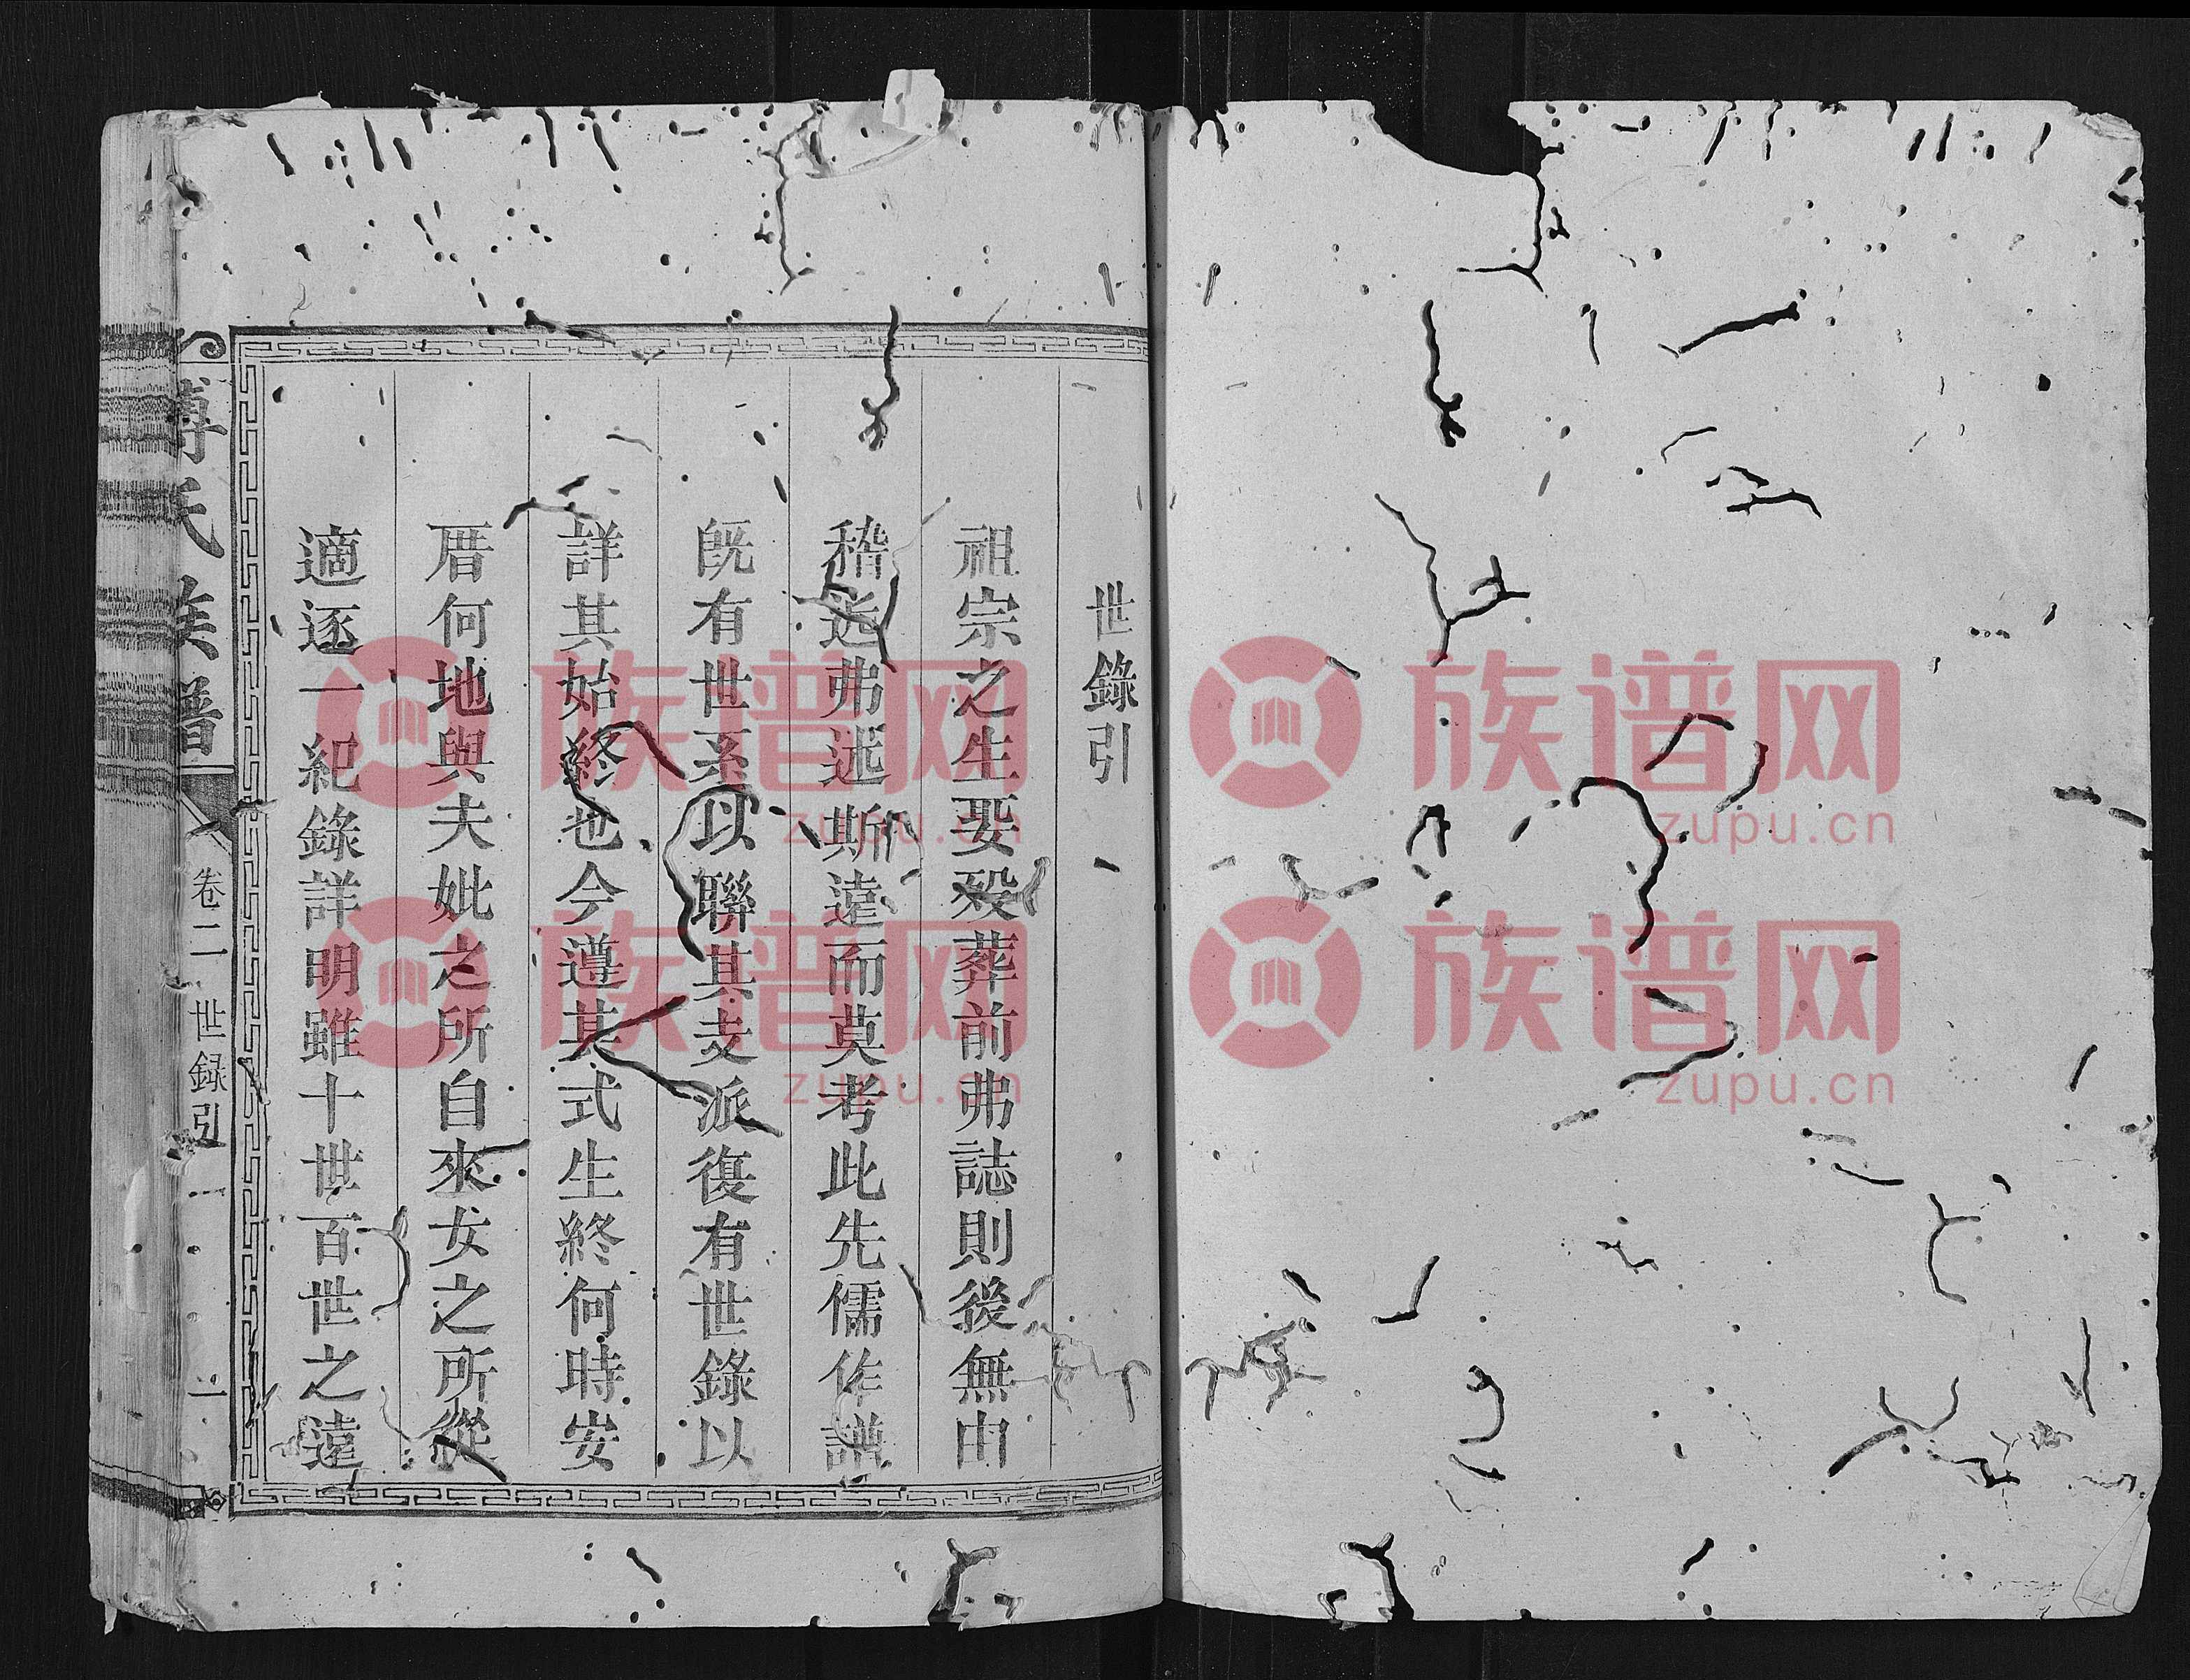 世錄引
祖宗之生娶殁葬前弗誌則後無由
稽迄弗述斯遠而莫考此先儒作譜
旣有世系以聯其支派復有世錄以
詳其始終也今遵其式生終何時安
厝何地與夫妣之所自來女之所從
適逐一紀錄詳明雖十世百世之遠
氏族譜
卷二
世録引
一
族谱网
zupu.cn
族谱网
zupu.cn
族谱网
zupu.cn
族谱网
zupu.cn